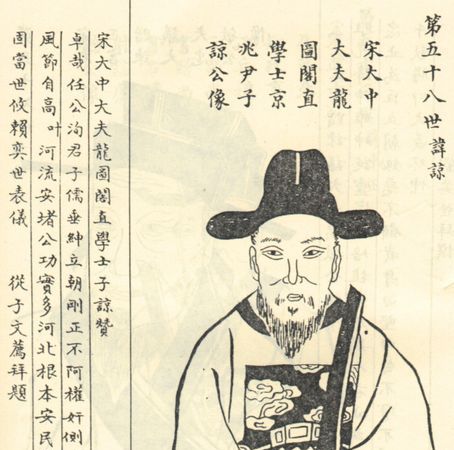 第五十八世諱諒
宋大中
大夫龍
圖閣直
學士京
兆尹子
諒公像
宋大中大夫龍圖閣直學士子諒贊
卓哉任公洵君子儒垂紳立朝剛正不阿權奸側
風節自高叶河流安堵公功實多河北根本安民
固當世攸賴奕世表儀 從子文薦拜題